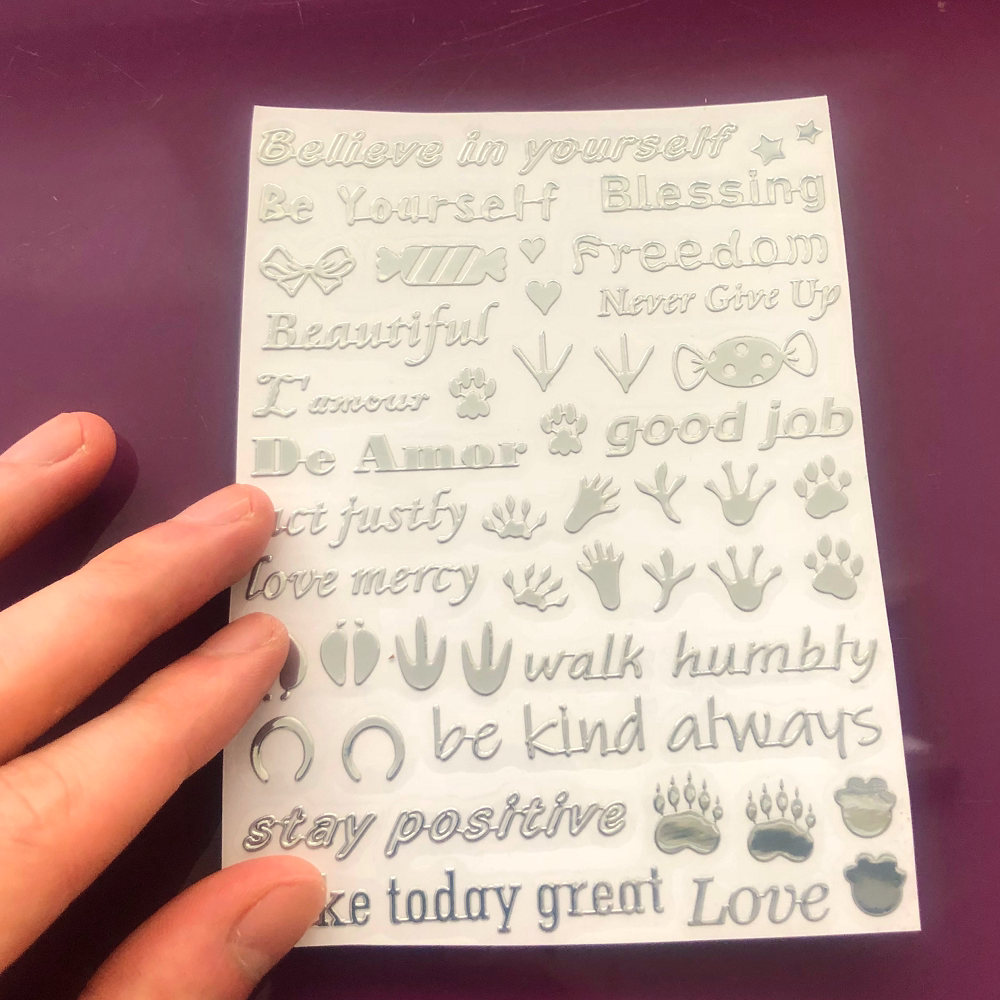 Believe in yourself
Be Yourself Blessing
Freedom
Never Give Up
Beautiful
L'amour
good job
De Amor
act justly
love mercy
walk humbly
be kind always
stay positive
ke today great Love